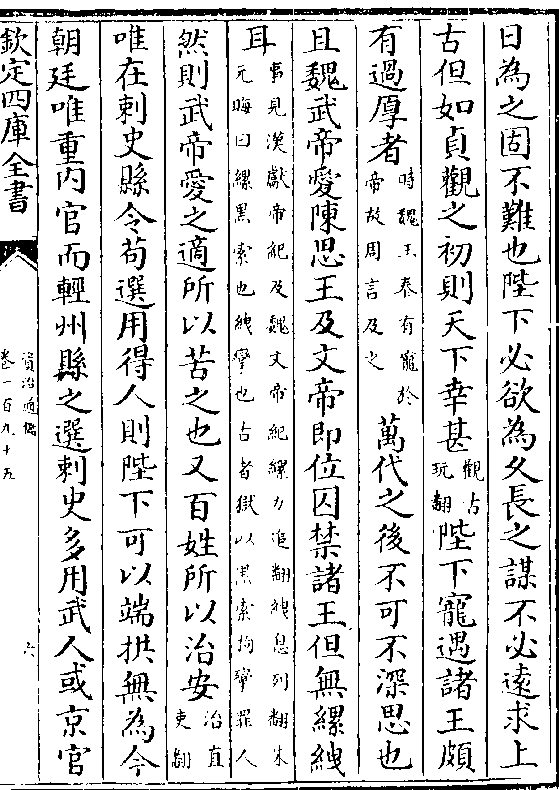 日為之固不難也陛下必欲為久長之謀不必遠求上
古但如貞觀之初則天下幸甚觀古玩翻陛下寵遇諸王頗
有過厚者時魏王泰有寵於帝故周言及之萬代之後不可不深思也
且魏武帝愛陳思王及文帝即位囚禁諸王但無縲絏
耳事見漢獻帝紀及魏文帝紀縲力追翻絏息列翻朱元晦曰縲黑索也絏攣也古者獄以黑索拘攣罪人
然則武帝愛之適所以苦之也又百姓所以治安治直吏翻
唯在刺史縣令苟選用得人則陛下可以端拱無為今
朝廷唯重内官而輕州縣之選刺史多用武人或京官
欽定四庫全書
資治通鑑
卷一百九十五
六